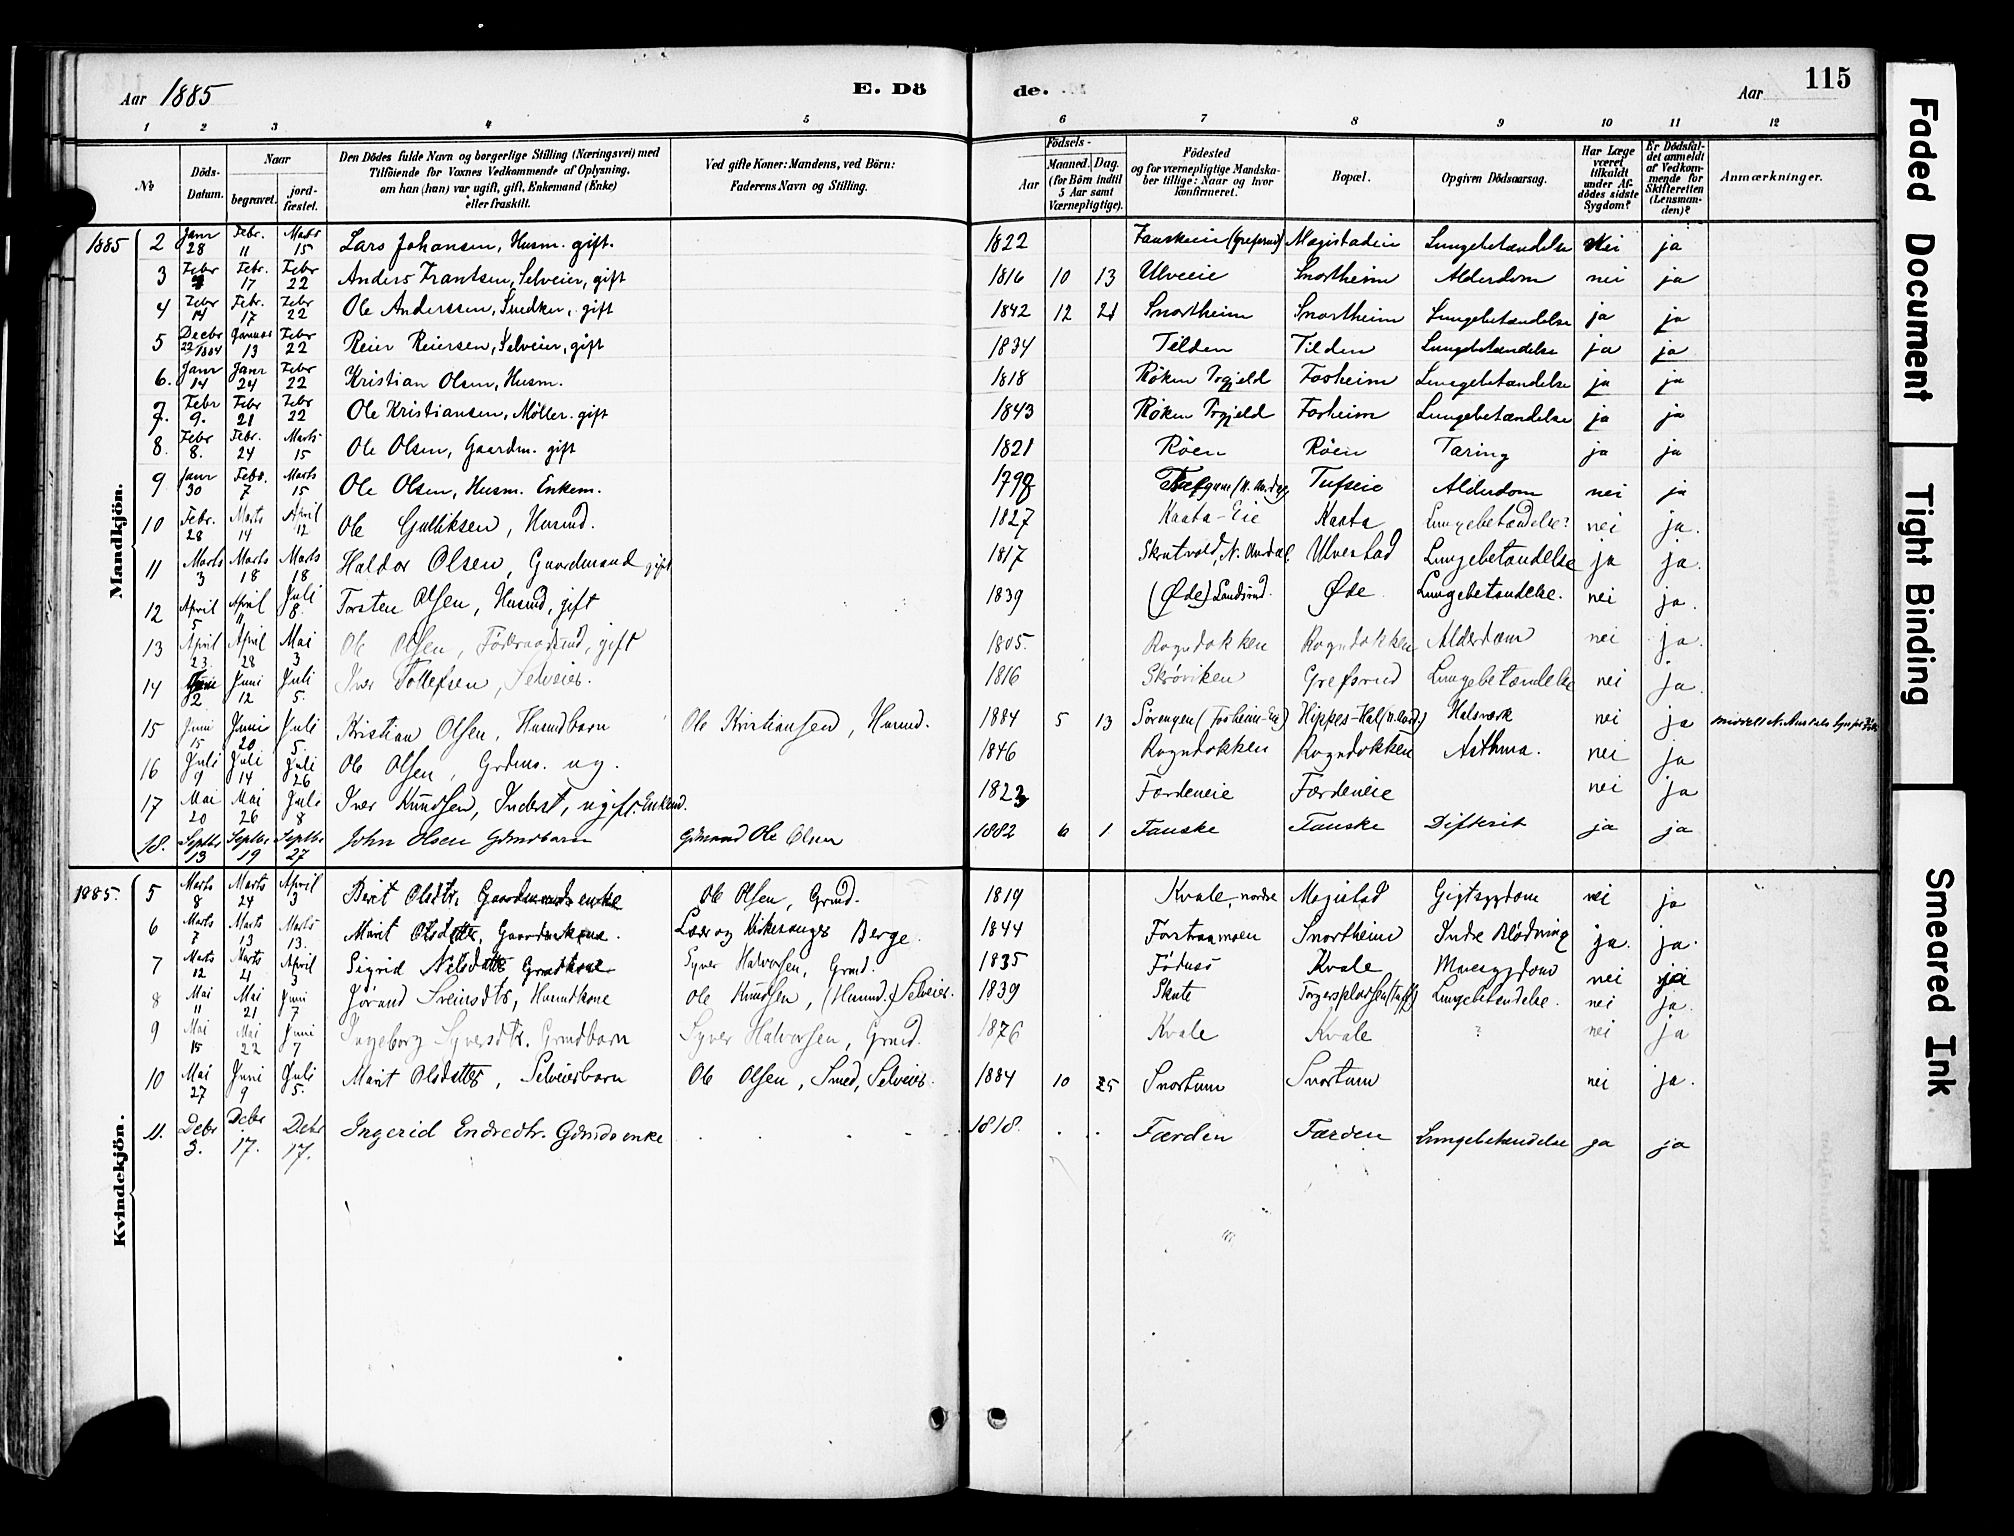 Aar 1885
E. Dö
de.
Aar
115
1 2 3 4 5 6 7 8 9 10 11 12
No
Döds-Datum.
Naar
begravet.
jord-fæstet.
Den Dödes fulde Navn og borgerlige Stilling (Næringsvei) med
Tilföiende for Voxnes Vedkommende af Oplysning,
om han (hun) var ugift, gift, Enkemand (Enke)
eller fraskilt.
Ved gifte Koner: Mandens, ved Börn:
Faderens Navn og Stilling.
Födsels-
Aar
Maaned. Dag.
(for Börn indtil
5 Aar samt
Værnepligtige).
Födested
og for værnepligtige Mandska-
ber tillige: Naar og hvor
konfirmeret.
Bopæl.
Opgiven Dödsaarsag.
Har Læge
været
tilkaldt
under Af-
dödes sidste
Sygdom?
Er Dödsfal-
det anmeldt
af Vedkom-
mende for
Skifteretten
(Lensman-
den)?
Anmærkninger.
Mandkjön.
1885 2 Janr 28 Febr. 11 Marts 15 Lars Johansen, Husm. gift. 1822 Fauskeeie (Grefsrud) Magistadeie Lungebetændelse Nei ja
3 Febr Febr. 17 Febr 22 Anders Frantsen, Selveier, gift 1816 10 13 Ulveeie Snortheim Alderdom nei ja
4 Febr 14 Febr. 17 Febr 22 Ole Anderssen, Snedker, gift 1842 12 21 Snortheim Snortheim Lungebetændelse ja ja
5 Decbr 22/1884 Januar 13 Febr 22 Reier Reiersen, Selveier, gift 1834 Tilden Tilden Lungebetændelse ja ja
6. Janr 14 Janr 24 Febr 22 Kristian Olsen, Husm. 1818 Røken Prgjeld Fosheim Lungebetændelse ja ja
7. Febr 9. Febr 21 Febr 22 Ole Kristiansen, Møller. gift 1843 Røken Prgjeld Fosheim Lungebetændelse ja ja
8. Febr 8. Febr. 24 Marts 15 Ole Olsen, Gaardm. gift 1821 Røen Røen Tæring ja ja
9 Janr 30 Febr. 7 Marts 15 Ole Olsen, Husm. Enkem. Tufseie Alderdom nei ja
10 Febr. 28 Marts 14 April 12 Ole Gulliksen, Husmd. 1827 Kaata-Eie Kaata Lungebetændelse? nei ja.
11 Marts 3 Marts 18 Marts 18 Haldor Olsen, Gaardmand gift 1817 Skrutvold, N. Aurdal. Ulvestad Lungebetændelse ja ja.
12 April 5 April 11 Juli 8. Torsten Olsen, Husmd, gift 1839 (Øde) Øde Lungebetændelse. nei ja.
13 April 23. April 28 Mai 3 Ole Olsen, Föderaadsmd, gift 1805. Rogndokken Rogndokken Alderdom nei ja.
14 Juni 2 Juni 12 Juli 5. Iver Tollefsen, Selveier. 1816 Skrøviken Grefsrud Lungebetændelse nei ja.
15 Juni 15 Juni 20 Juli 5 Kristian Olsen, Husmdbarn Ole Kristiansen, Husmd. 1884 5 13 Sørengen (Fosheim-Eie) Halsværk nei ja
16 Juli 9 Juli 14 Juli 26 Ole Olsen, Grdms. ug. 1846 Rogndokken Rogndokken Asthma. nei ja
17 Mai 20 Mai 26 Juli 8 Iver Knudsen, Inderst, ugift. Enkemd. 1823 Færdeneie Færdeneie nei ja
18. Septbr 13 Septbr 19 Septbr 27 John Olsen Gdmdbarn Gdmand Ole Olsen 1882 6 1 Fauske Fauske Difterit ja ja
Kvindekjön.
1885. 5 Marts 8 Marts 24 April 3 Berit Olsdtr. Gaardmands enke Ole Olsen, Grmd. 1819 Kvale, nordre Magistad Gigtsygdom nei ja
6 Marts Marts 13 Marts 13. Marit Olsdatter, Gaardmkone. Lærer og Kirkesanger Berge. 1844 Snortheim Indre Blødning ja. ja.
7 Marts 12 Marts 21 April 3 Sigrid Nilsdatter, Grmdkone Syver Halvorsen, Grmd. 1835 Föduss Kvale Mavesygdom nei ja
8 Mai 11 Mai 21 Juni 7 Jørand Sveinsdtr, Husmdkone Ole Knudsen, (Husmd.) Selveier. 1839 Skute Lungebetændelse. nei ja.
9 Mai 15 Mai 22 Juni 7 Ingeborg Syversdtr. Grmdbarn Syver Halvorsen, Grmd. 1876 Kvale Kvale ? nei ja
10 Mai 27 Juni 9 Juli 5. Marit Olsdatter, Selveierbarn Ole Olsen, Smed, Selveier. 1884 10 25 Snortum Snortum nei ja.
11. Debr 3. Debr 17. Debr 17. Ingerid Endredtr. Gdmds enke 1818. Færden Færden Lungebetændelse ja ja
Faded Document
Tight Binding
Smeared Ink